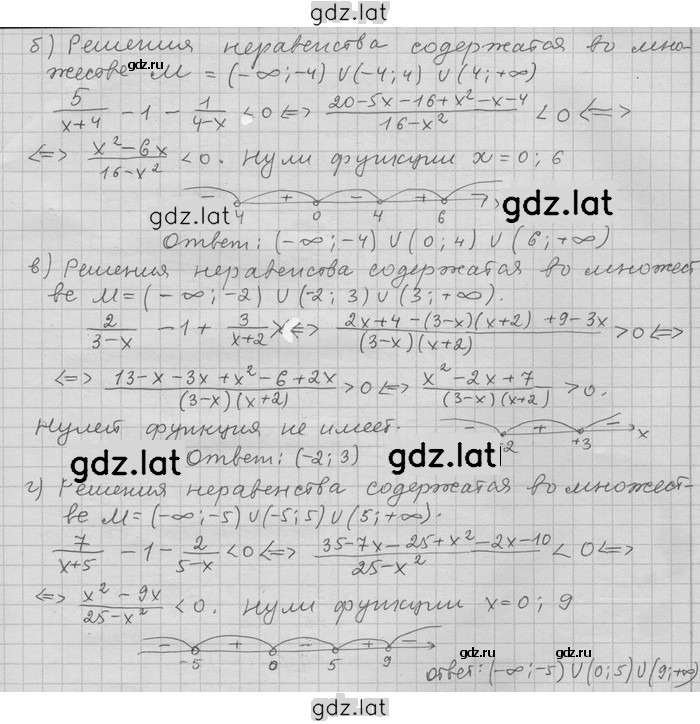 gdz.lat
б) Решения неравенства содержатся во мно-
жестве M = (-∞;-4) ∪ (-4; 4) ∪ (4; +∞)
5/(x+4) - 1 - 1/(4-x) < 0 <=> (20-5x-16+x²-x-4)/(16-x²) < 0 <=>
<=> (x²-6x)/(16-x²) < 0. Нули функции x = 0; 6
- + - + -
-4 0 4 6 x
gdz.lat gdz.ru gdz.lat
Ответ: (-∞;-4) ∪ (0; 4) ∪ (6; +∞)
в) Решения неравенства содержатся во множест
ве M = (-∞; -2) ∪ (-2; 3) ∪ (3; +∞).
2/(3-x) - 1 + 3/(x+2) > <=> (2x+4-(3-x)(x+2)+9-3x)/((3-x)(x+2)) > 0 <=>
<=> (13-x-3x+x²-6+2x)/((3-x)(x+2)) > 0 <=> (x²-2x+7)/((3-x)(x+2)) > 0.
Нулей функция не имеет.
- + -
-2 +3 x
gdz.lat gdz.lat
Ответ: (-2; 3)
г) Решения неравенства содержатся во множест-
ве M = (-∞; -5) ∪ (-5; 5) ∪ (5; +∞).
7/(x+5) - 1 - 2/(5-x) < 0 <=> (35-7x-25+x²-2x-10)/(25-x²) < 0 <=>
<=> (x²-9x)/(25-x²) < 0. Нули функции x = 0; 9
- + - + -
-5 0 5 9
gdz.ru gdz.ru
Ответ: (-∞;-5) ∪ (0; 5) ∪ (9; +∞)
gdz.lat